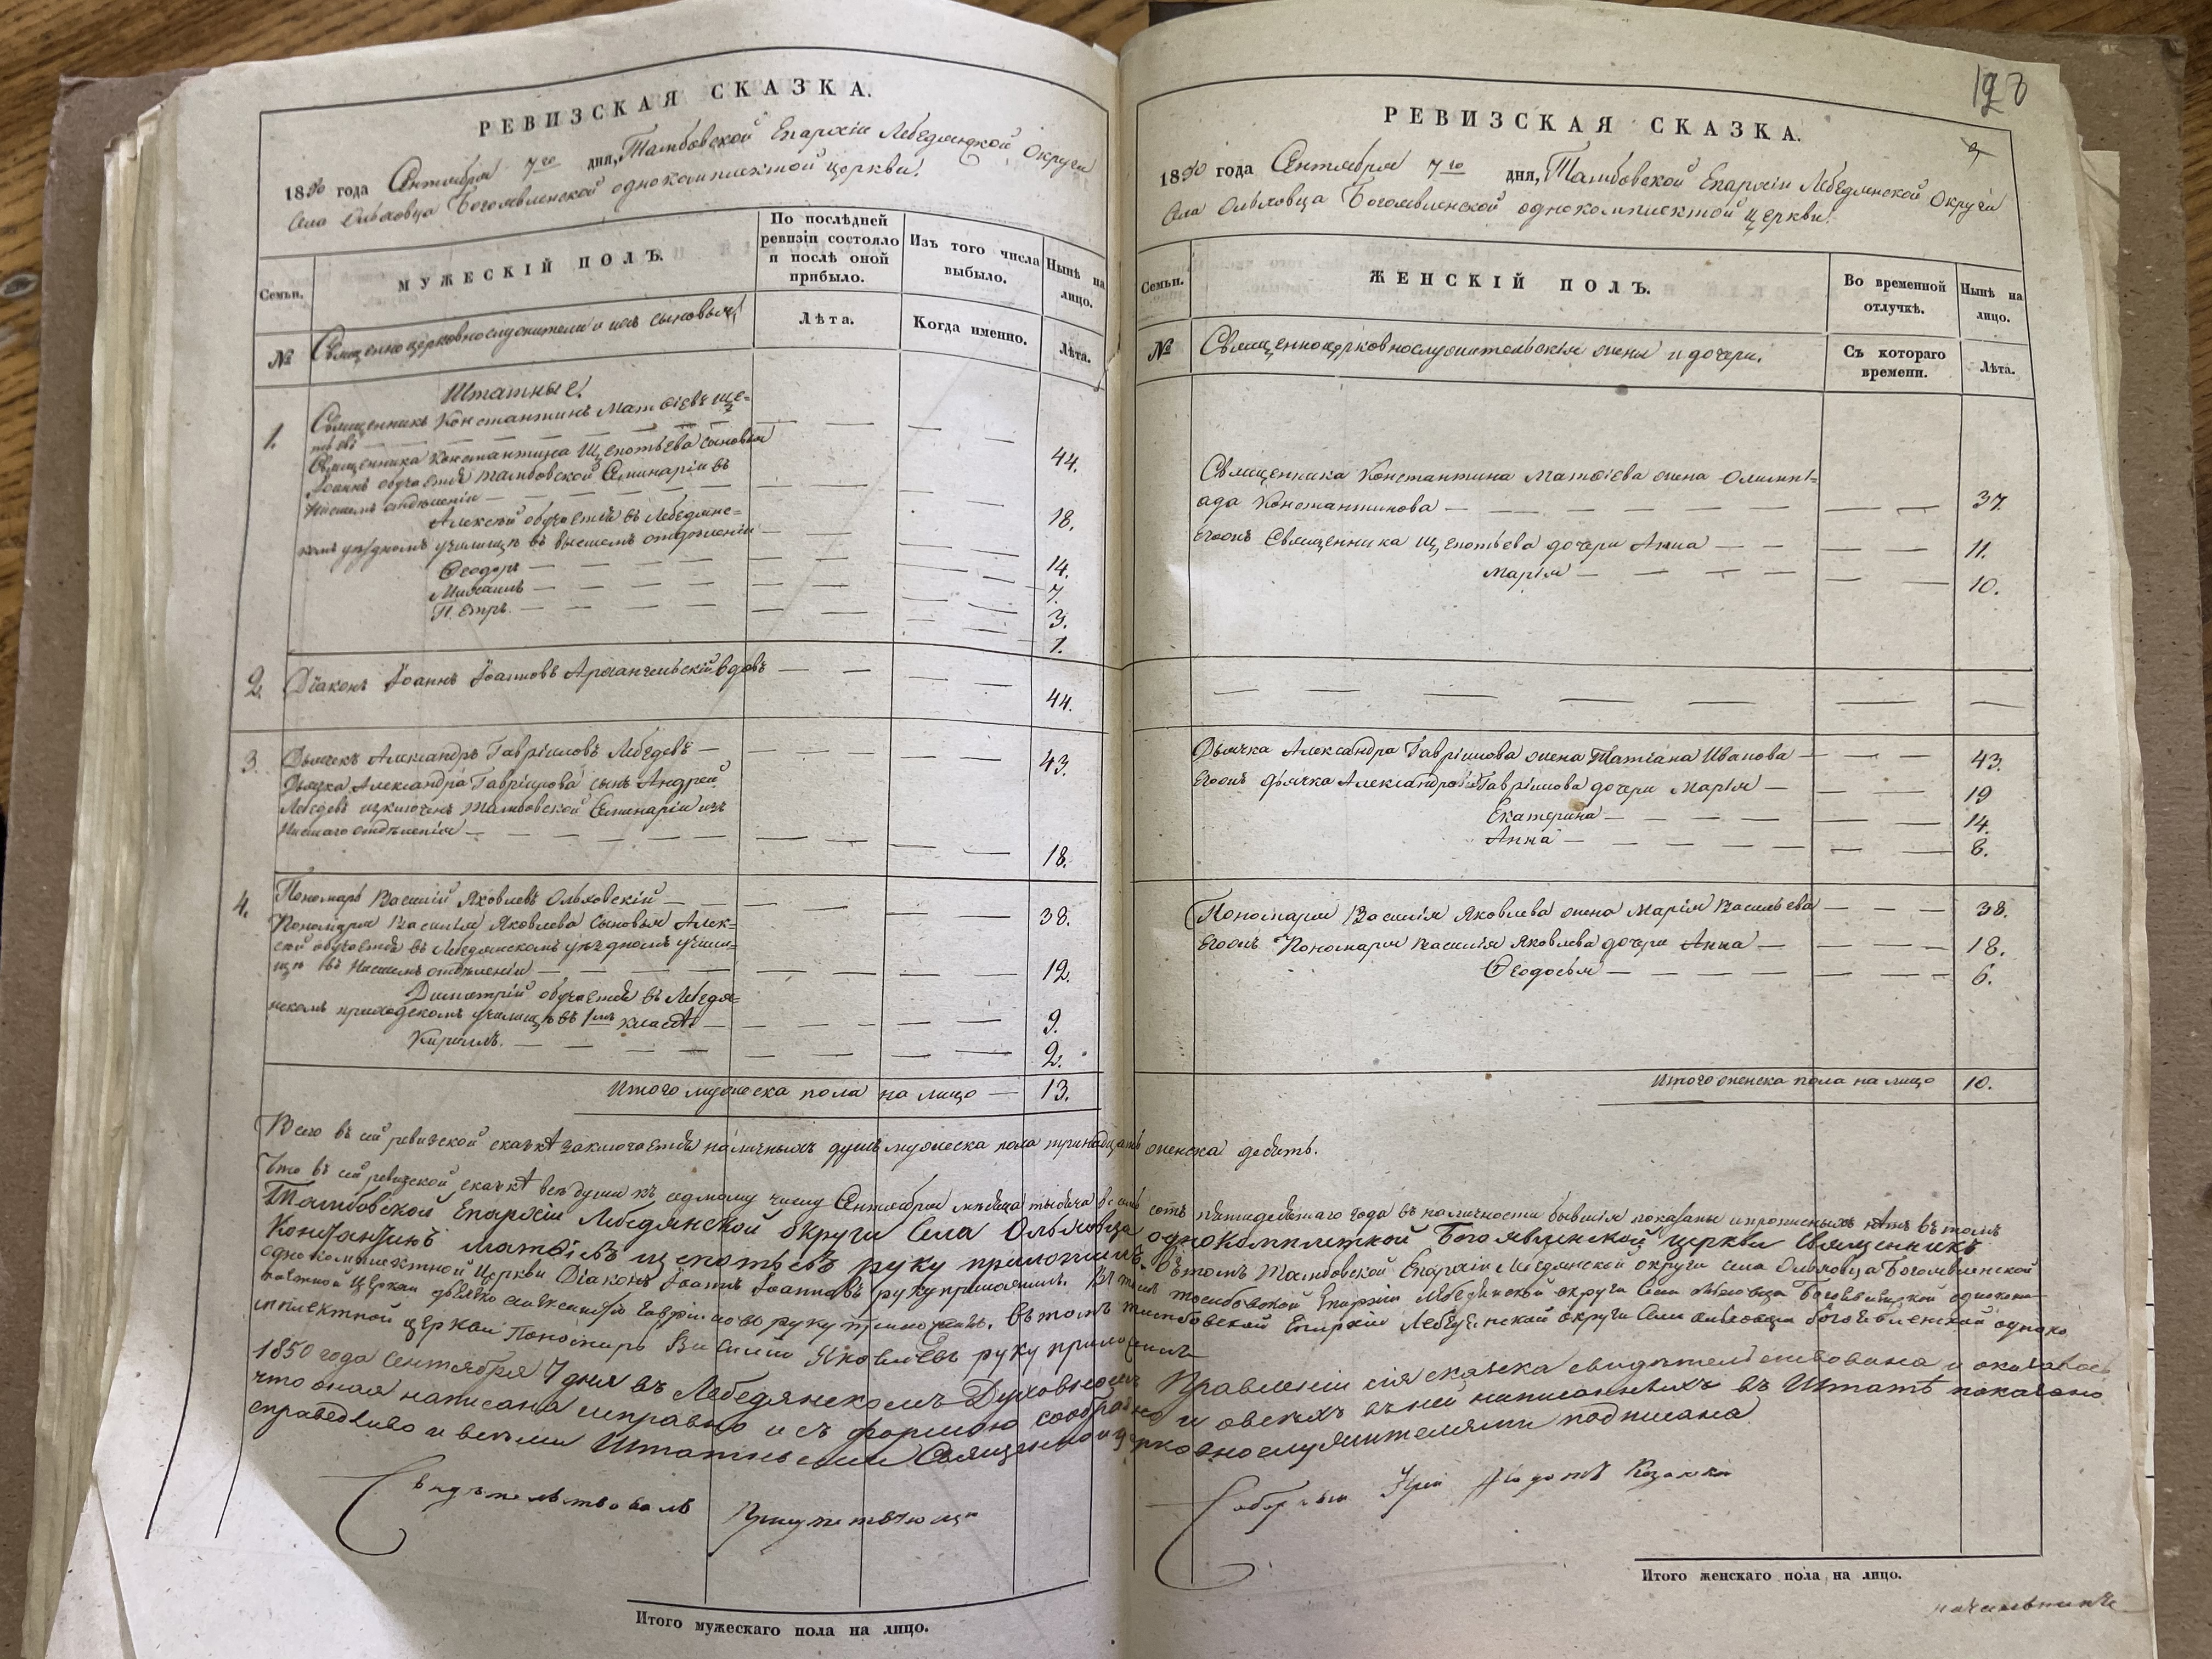 РЕВИЗСКАЯ СКАЗКА.
1850 года Сентября 7го дня, Тамбовской Епархіи Лебедянской Округи
Села Ольховца Богоявленской однокомплектной церкви.
Семьи.
МУЖЕСКІЙ ПОЛЪ.
По послѣдней ревизіи состояло и послѣ оной прибыло.
Изъ того числа выбыло.
Нынѣ на лицо.
№
Священноцерковнослужители и ихъ сыновья
Лѣта.
Когда именно.
Лѣта.
Штатные.
1. Священникъ Константинъ Матѳіевъ Щепо-
тьевъ — 44.
Священника Константина Щепотьева сыновья
Іоаннъ обучается въ Тамбовской Семинаріи въ
Нисшемъ отдѣленіи — 18.
Алексѣй обучается въ Лебедянс-
комъ уѣздномъ училищѣ въ высшемъ отдѣленіи — 14.
Ѳеодоръ — 7.
Михаилъ — 3.
Петръ — 1.
2. Діаконъ Іоаннъ Іоанновъ Архангельскій вдовъ — 44.
3. Дьячекъ Александръ Гавріиловъ Лебедевъ — 43.
Дьячка Александра Гавріилова сынъ Андрей
Лебедевъ исключенъ Тамбовской Семинаріи изъ
Нисшаго отдѣленія — 18.
4. Пономарь Василій Яковлевъ Ольховскій — 38.
Пономаря Василія Яковлева сыновья Алек-
сѣй обучается въ Лебедянскомъ уѣздномъ учили-
щѣ въ Нисшемъ отдѣленіи — 12.
Димитрій обучается въ Лебедя-
нскомъ приходскомъ училищѣ въ 1мъ классѣ — 9.
Кириллъ. — 2.
Итого мужеска пола на лицо — 13.
РЕВИЗСКАЯ СКАЗКА.
1850 года Сентября 7го дня, Тамбовской Епархіи Лебедянской Округи
Села Ольховца Богоявленской однокомплектной церкви.
Семьи.
ЖЕНСКІЙ ПОЛЪ.
Во временной отлучкѣ.
Нынѣ на лицо.
№
Священноцерковнослужительскія жены и дочери.
Съ котораго времени.
Лѣта.
Священника Константина Матѳіева жена Олимпі-
ада Константинова — 37.
Егожъ Священника Щепотьева дочери Анна — 11.
Марія — 10.
Дьячка Александра Гавріилова жена Татіана Иванова — 43.
Егожъ Дьячка Александра Гавріилова дочери Марія — 19
Екатерина — 14.
Анна — 8.
Пономаря Василія Яковлева жена Марія Васильева — 38.
Егожъ Пономаря Василія Яковлева дочери Анна — 18.
Ѳеодосья — 6.
Итого женска пола на лицо 10.
Всего въ сей ревизской сказкѣ заключается наличныхъ душъ мужеска пола тринадцать женска десять.
Что въ сей ревизской сказкѣ всѣ души къ седмому числу Сентября мѣсяца тысяча восемь сотъ пятидесятаго года въ наличности бывшія показаны и прописныхъ нѣтъ въ томъ
Тамбовской Епархіи Лебедянской округи Села Ольховца однокомплектной Богоявленской церкви священникъ
Константинъ Матѳіевъ Щепотьевъ руку приложилъ. Въ томъ Тамбовской Епархіи Лебедянской округи села Ольховца Богоявленской
однокомплектной Церкви Діаконъ Іоаннъ Іоанновъ руку приложилъ. Въ томъ Тамбовской Епархіи Лебедянской округи Села Ольховца Богоявленской одноком-
плектной Церкви дьячекъ Александръ Гавріиловъ руку приложилъ. Въ томъ Тамбовской Епархіи Лебедянской округи Села Ольховца Богоявленской одноко
мплектной церкви Пономарь Василій Яковлевъ руку приложилъ
1850 года Сентября 7 дня въ Лебедянскомъ Духовномъ Правленіи сія сказка свидѣтельствована и оказалось
что оная написана исправно и съ формою сообразно и о всѣхъ въ ней написанныхъ въ Штатѣ показано
справедливо и всѣми Штатными Священноцерковнослужителями подписана
Свидѣтельствовалъ Присутствующи
Соборный Іерей
Итого мужескаго пола на лицо.
Итого женскаго пола на лицо.